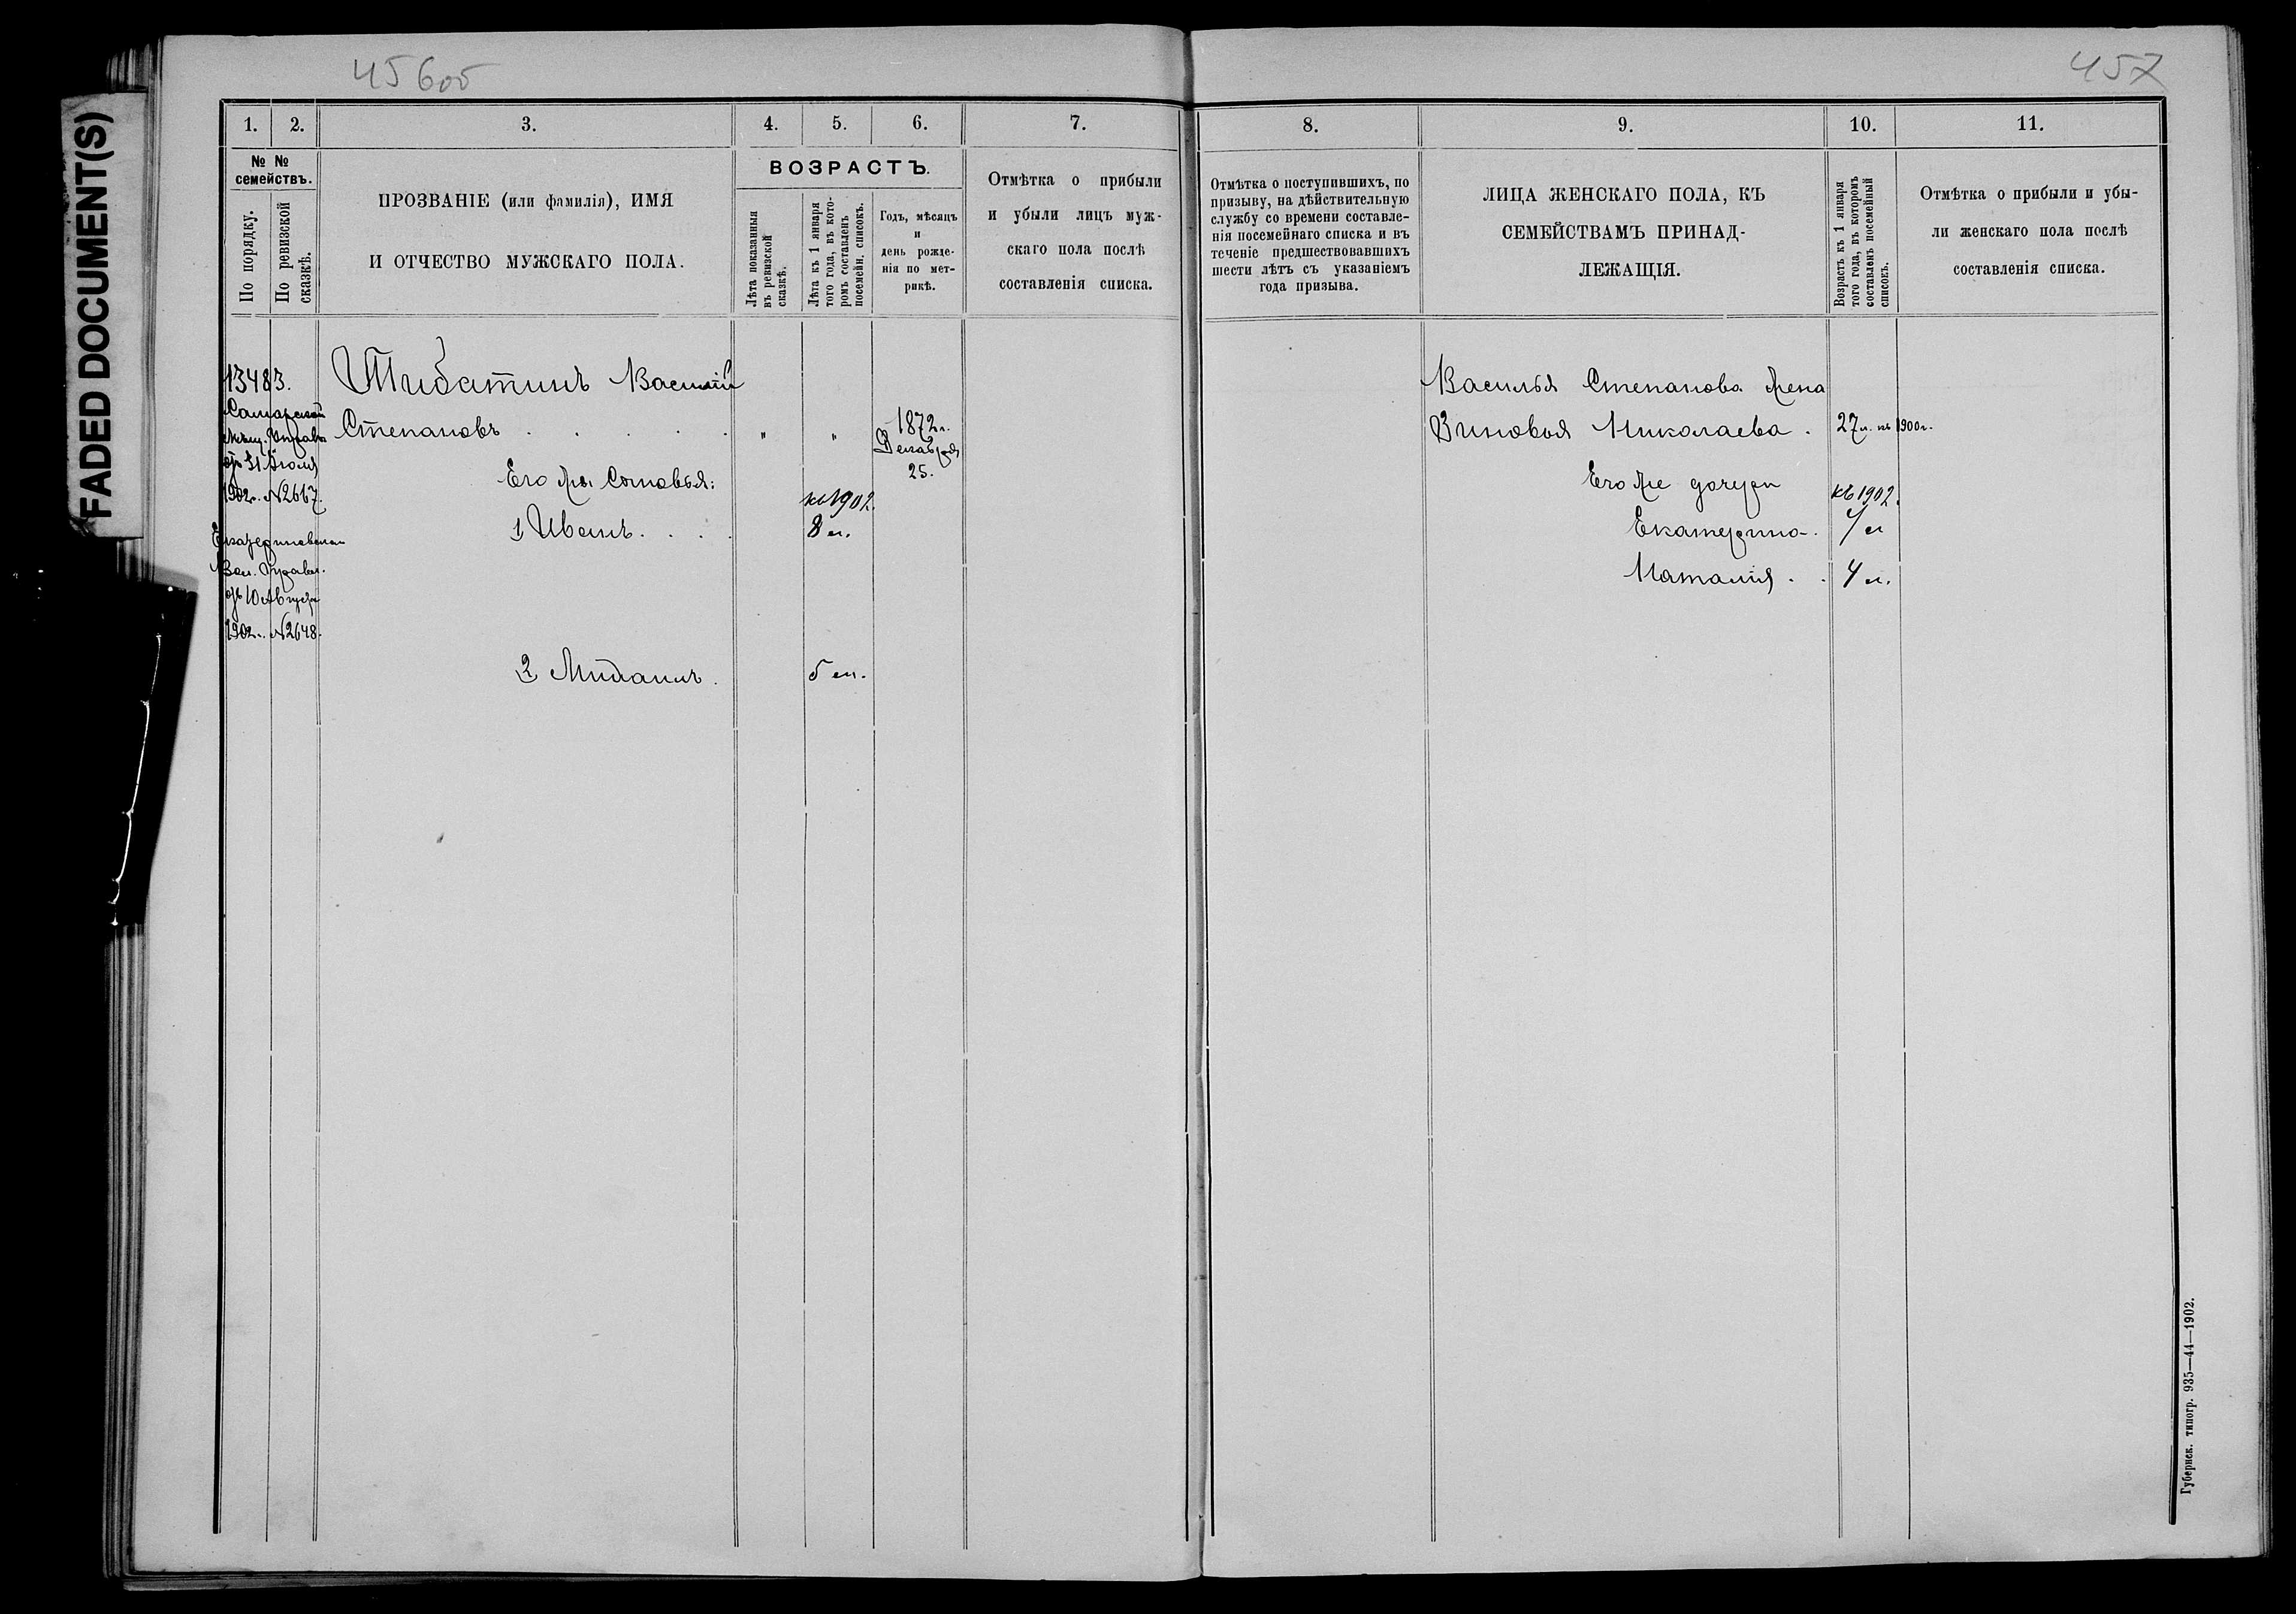 FADED DOCUMENT(S)
456об
457
1. 2. 3. 4. 5. 6. 7.
№ №
семействъ.
По порядку.
По ревизской
сказкѣ.
ПРОЗВАНІЕ (или фамилія), ИМЯ
И ОТЧЕСТВО МУЖСКАГО ПОЛА.
ВОЗРАСТЪ.
Лѣта показанныя
въ ревизской
сказкѣ.
Лѣта къ 1 января
того года, въ кото-
ромъ составленъ
посемейн. списокъ.
Годъ, мѣсяцъ
и
день рожде-
нія по мет-
рикѣ.
Отмѣтка о прибыли
и убыли лицъ муж-
скаго пола послѣ
составленія списка.
13483.
Самарской
Мѣщ. Управы
отъ 31 Іюля
1902г. №2667.
Екатериновскаго
Вол. Правл.
отъ 10 Августа
1902г. №2648.
Шибатинъ Василій
Степановъ . . . . . " "
1872г.
Декабря
25.
Его же сыновья:
къ 1902
1 Иванъ. . . . 8 л.
2 Михаилъ. 5 л.
8. 9. 10. 11.
Отмѣтка о поступившихъ, по
призыву, на дѣйствительную
службу со времени составле-
нія посемейнаго списка и въ
теченіе предшествовавшихъ
шести лѣтъ съ указаніемъ
года призыва.
ЛИЦА ЖЕНСКАГО ПОЛА, КЪ
СЕМЕЙСТВАМЪ ПРИНАД-
ЛЕЖАЩІЯ.
Возрастъ къ 1 января
того года, въ которомъ
составленъ посемейный
списокъ.
Отмѣтка о прибыли и убы-
ли женскаго пола послѣ
составленія списка.
Василья Степанова жена
Зиновья Николаева . 27 л. къ 1900г.
Его же дочери
къ 1902.
Екатерина. л
Наталія . . 4 л.
Губернск. типогр. 935—44—1902.